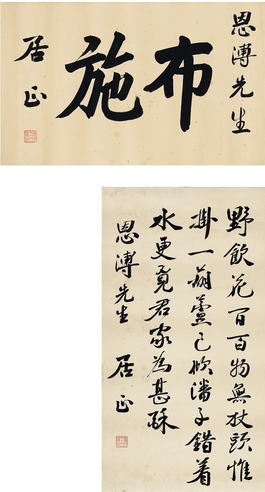 恩溥先生
布施
居正
野飲花間百物無杖頭惟
掛一葫蘆已傾潘子錯着
水更覓君家為甚酥
恩溥先生 居正